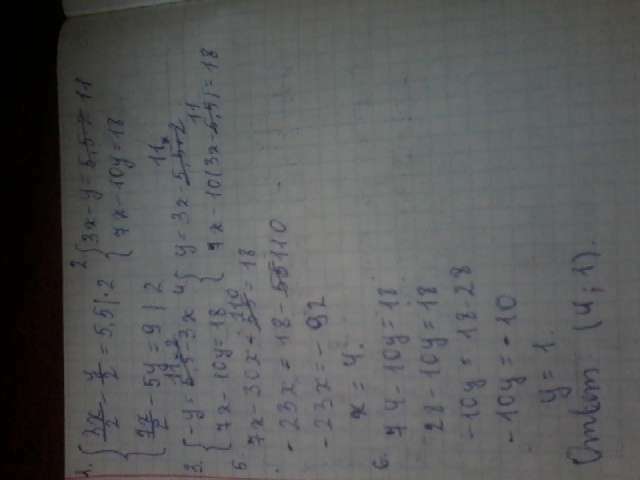 1. { 3x/2 - y/2 = 5,5 | · 2
7x/2 - 5y = 9 | 2
2 { 3x - y = 11
7x - 10y = 18
3. { -y = 11 - 3x
7x - 10y = 18
4 { y = 3x - 11
7x - 10(3x - 11) = 18
5. 7x - 30x + 110 = 18
- 23x = 18 - 110
- 23x = - 92
x = 4.
6. 7 4 - 10y = 18
28 - 10y = 18
-10y = 18 - 28
- 10y = - 10
y = 1.
Ответ (4 ; 1).